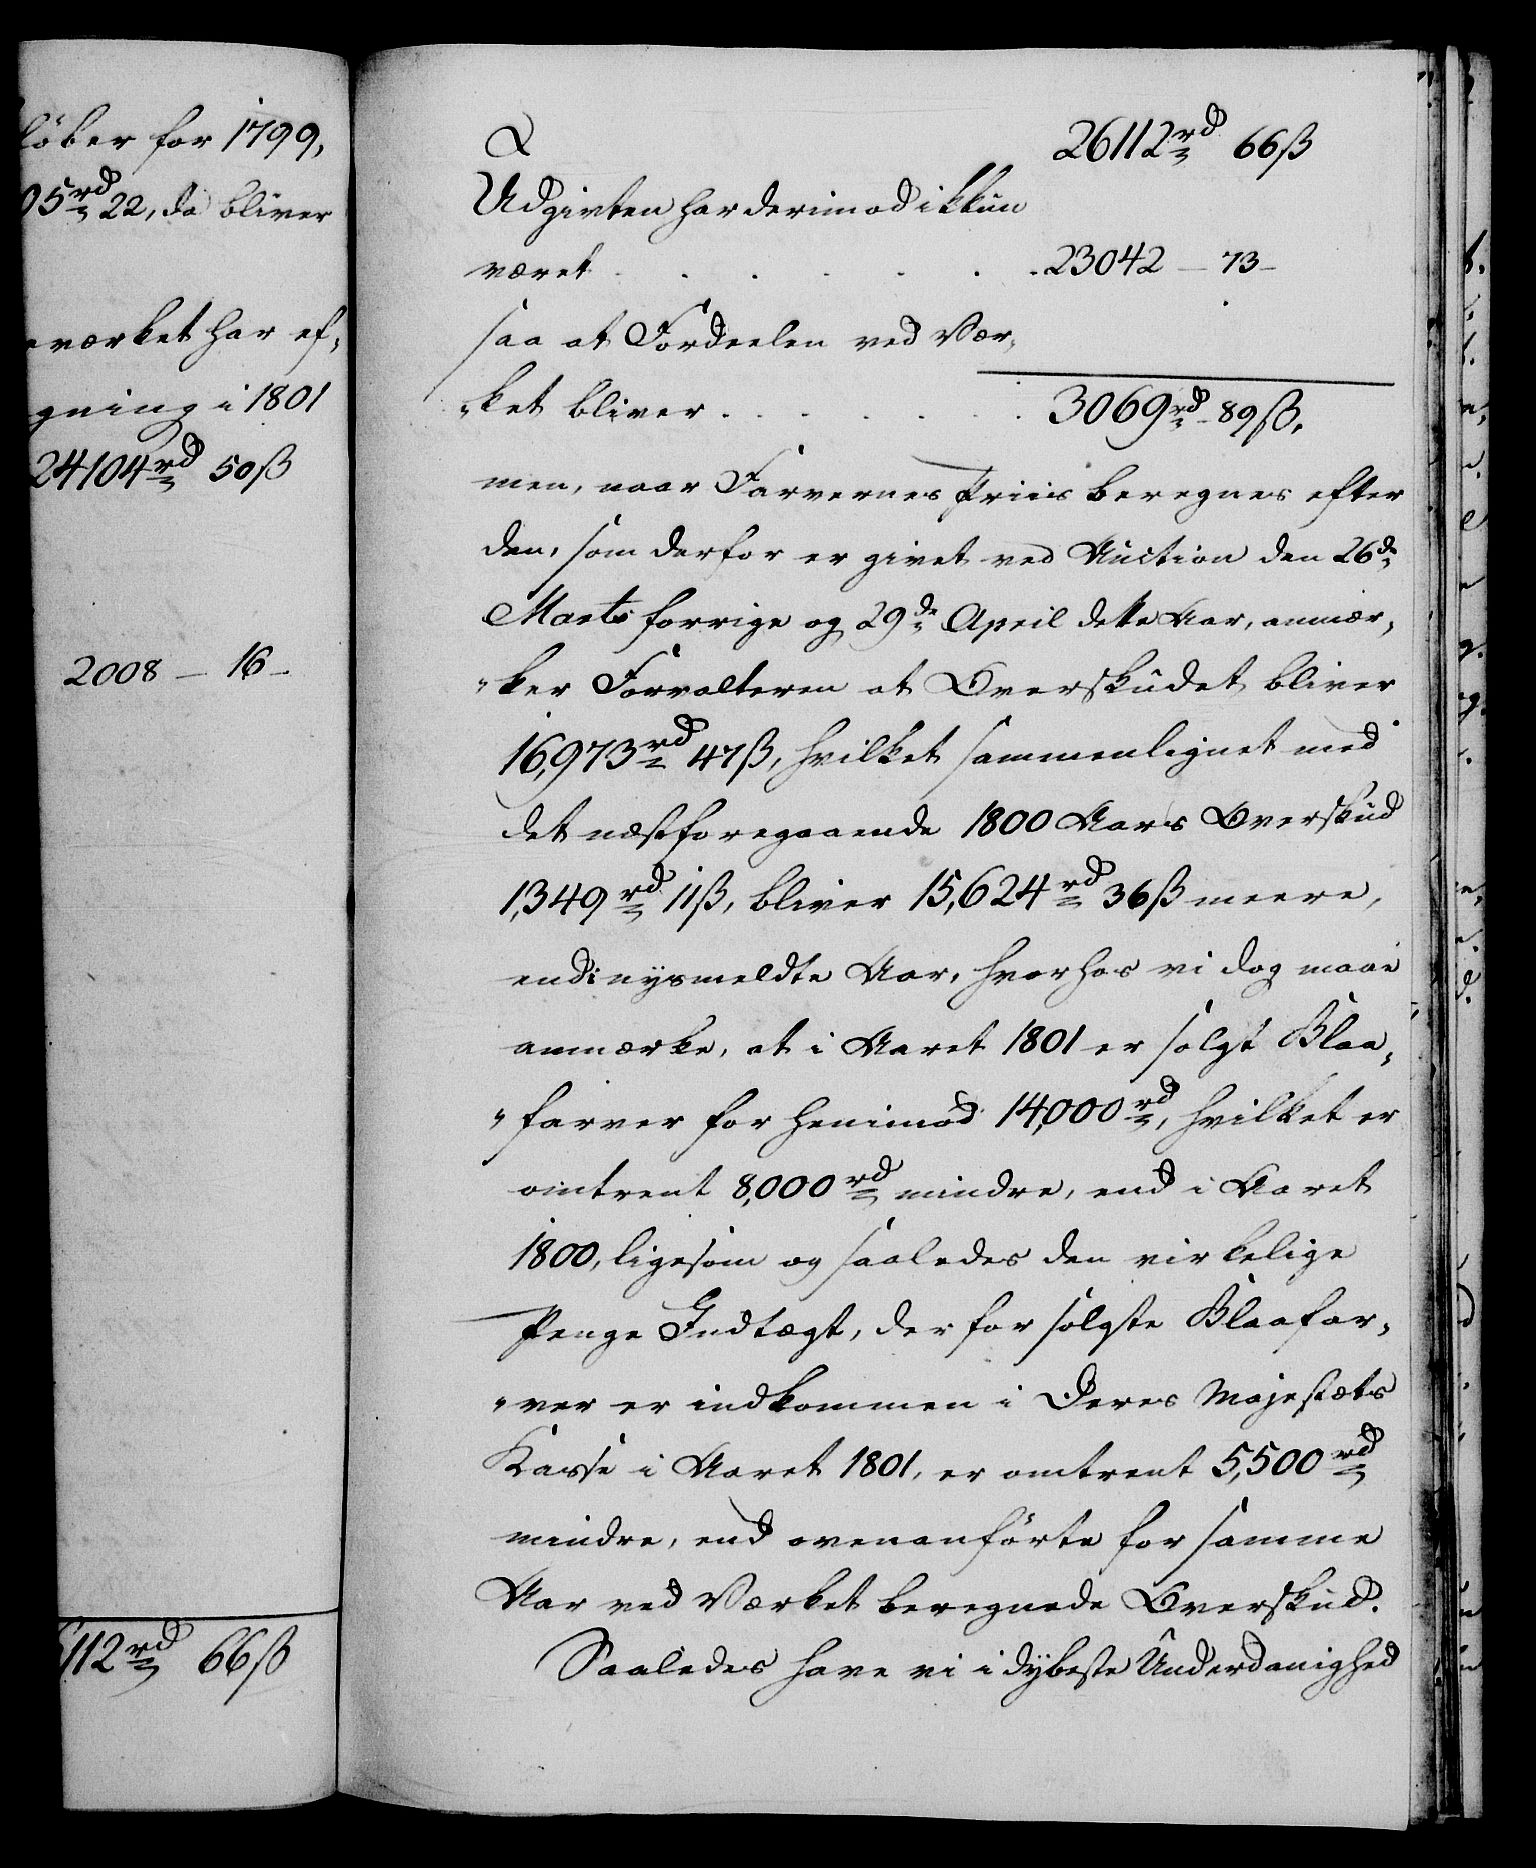 löber for 1799,
05rd 22, da bliver
værket har ef-
gning i 1801
24104rd 50ß
2008 – 16 –
6112rd 66ß
26112rd 66ß
Udgivten har derimod ikkun
været . . . . . . . 23042 – 73 –
saa at Fordeelen ved Vær-
ket bliver . . . . . . 3069rd 89ß,
men, naar Farvernes Priis beregnes efter
den, som derfor er givet ved Auction den 26de
Marts forrige og 29de April dette Aar, anmær-
ker Forvalteren at Overskudet bliver
16,973rd 47ß, hvilket sammenlignet med
det næstforegaaende 1800 Aars Overskud
1,349rd 11ß, bliver 15,624rd 36ß meere,
end i nysmeldte Aar, hvorhos vi dog maae
anmærke, at i Aaret 1801 er solgt Blaa-
farver for henimod 14,000rd, hvilket er
omtrent 8,000rd mindre, end i Aaret
1800, ligesom og saaledes den virkelige
Penge Indtægt, der for solgte Blaafar-
ver er indkommen i Deres Majestæts
Kasse i Aaret 1801, er omtrent 5,500rd
mindre, end ovenanförte for samme
Aar ved Værket beregnede Overskud.
Saaledes have vi i dybeste Underdanighed